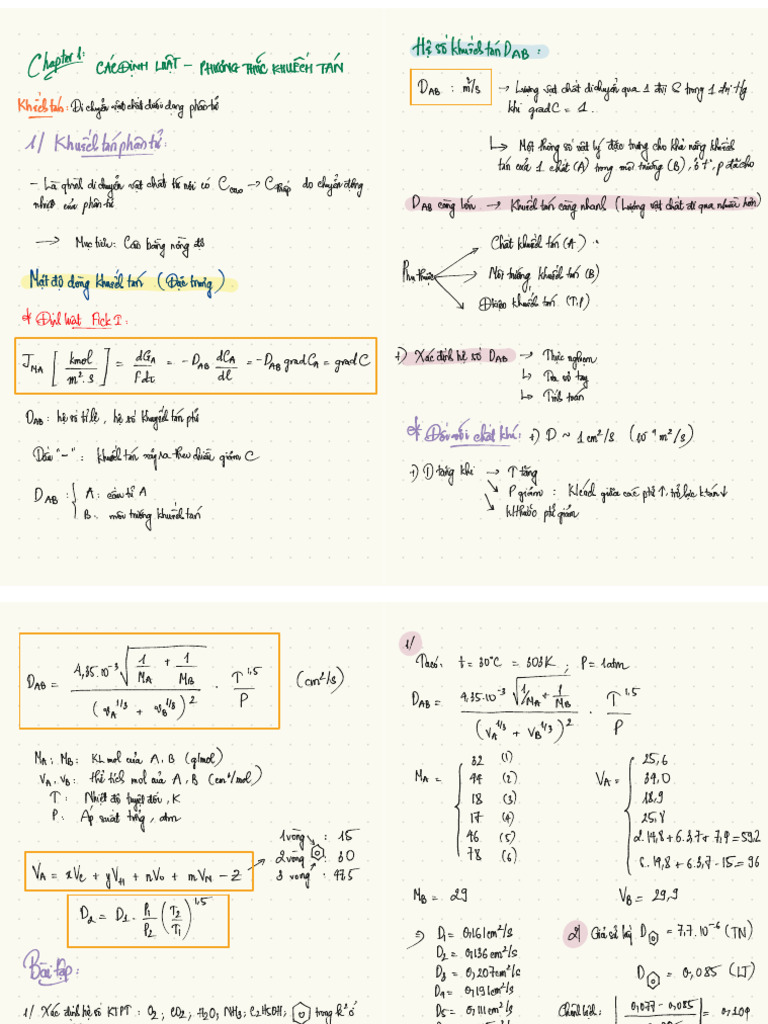 Chapter 1: CÁC ĐỊNH LUẬT – PHƯƠNG THỨC KHUẾCH TÁN
Khuếch tán: Di chuyển vật chất dưới dạng phân tử
1/ Khuếch tán phân tử:
– Là qtrình di chuyển vật chất từ nơi có C cao → C thấp do chuyển động
nhiệt của phân tử
→ Mục tiêu: Cân bằng nồng độ
Mật độ dòng khuếch tán (Đặc trưng)
* Định luật Fick I:
J_MA [kmol / m².s] = dG_A / Fdτ = -D_AB dC_A / dl = -D_AB grad C_A = grad C
D_AB: hệ số tỉ lệ, hệ số khuếch tán ptử
Dấu "–": khuếch tán xảy ra theo chiều giảm C
D_AB: { A: cấu tử A
B: môi trường khuếch tán
Hệ số khuếch tán D_AB:
D_AB: m²/s → Lượng vật chất di chuyển qua 1 đvị S trong 1 đvị tg
khi grad C = 1.
↳ Một thông số vật lý đặc trưng cho khả năng khuếch
tán của 1 chất (A) trong môi trường (B), ở t°, p đã cho
D_AB càng lớn → Khuếch tán càng nhanh (Lượng vật chất đi qua nhiều hơn)
Phụ thuộc
Chất khuếch tán (A)
Môi trường khuếch tán (B)
Đkiện khuếch tán (T, P)
+) Xác định hệ số D_AB → Thực nghiệm
↳ Tra sổ tay
↳ Tính toán
* Đối với chất khí: +) D ~ 1 cm²/s (10⁻⁴ m²/s)
+) D tăng khi → T tăng
P giảm: Kcách giữa các ptử ↑, trở lực ktán ↓
Kthước ptử giảm
D_AB = 4,35.10⁻³ √(1/M_A + 1/M_B) / (v_A^1/3 + v_B^1/3)² . T^1,5 / P (cm²/s)
M_A; M_B: KL mol của A, B (g/mol)
V_A, V_B: thể tích mol của A, B (cm³/mol)
T: Nhiệt độ tuyệt đối, K
P: Áp suất tổng, atm
V_A = xV_C + yV_H + nV_O + mV_N – Z
1 vòng: 15
2 vòng: 30
3 vòng: 47,5
D₂ = D₁ . P₁/P₂ (T₂/T₁)^1,5
Bài tập:
1/ Xác định hệ số KTPT: O₂; CO₂; H₂O; NH₃; C₂H₅OH; trong k² ở
1/
Ta có: t = 30°C = 303K; P = 1atm
D_AB = 4,35.10⁻³ √(1/M_A + 1/M_B) / (V_A^1/3 + V_B^1/3)² . T^1,5 / P
M_A = { 32 (1)
44 (2)
18 (3)
17 (4)
46 (5)
78 (6)
V_A = { 25,6
34,0
18,9
25,8
2.14,8 + 6.3,7 + 7,4 = 59,2
6.14,8 + 6.3,7 – 15 = 96
M_B = 29 V_B = 29,9
→ D₁ = 0,161 cm²/s
D₂ = 0,136 cm²/s
D₃ = 0,207 cm²/s
D₄ = 0,191 cm²/s
D₅ = 0,111 cm²/s
2/ Giả sử lấy D = 7,7.10⁻⁶ (TN)
D = 0,085 (LT)
Chênh lệch: | 0,077 – 0,085 | = 0,104